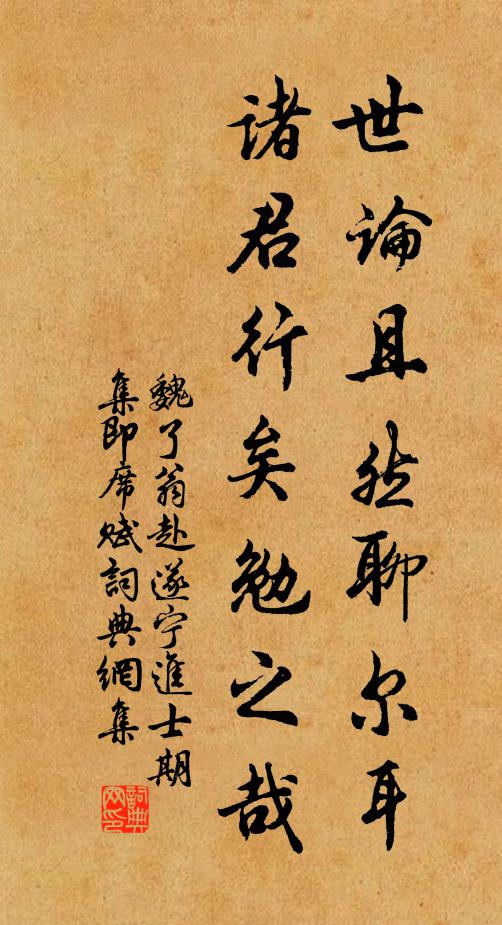 世论且然聊尔耳
诸君行矣勉之哉
魏了翁赴遂宁進士期
集即席赋詞典網集
詞典网印